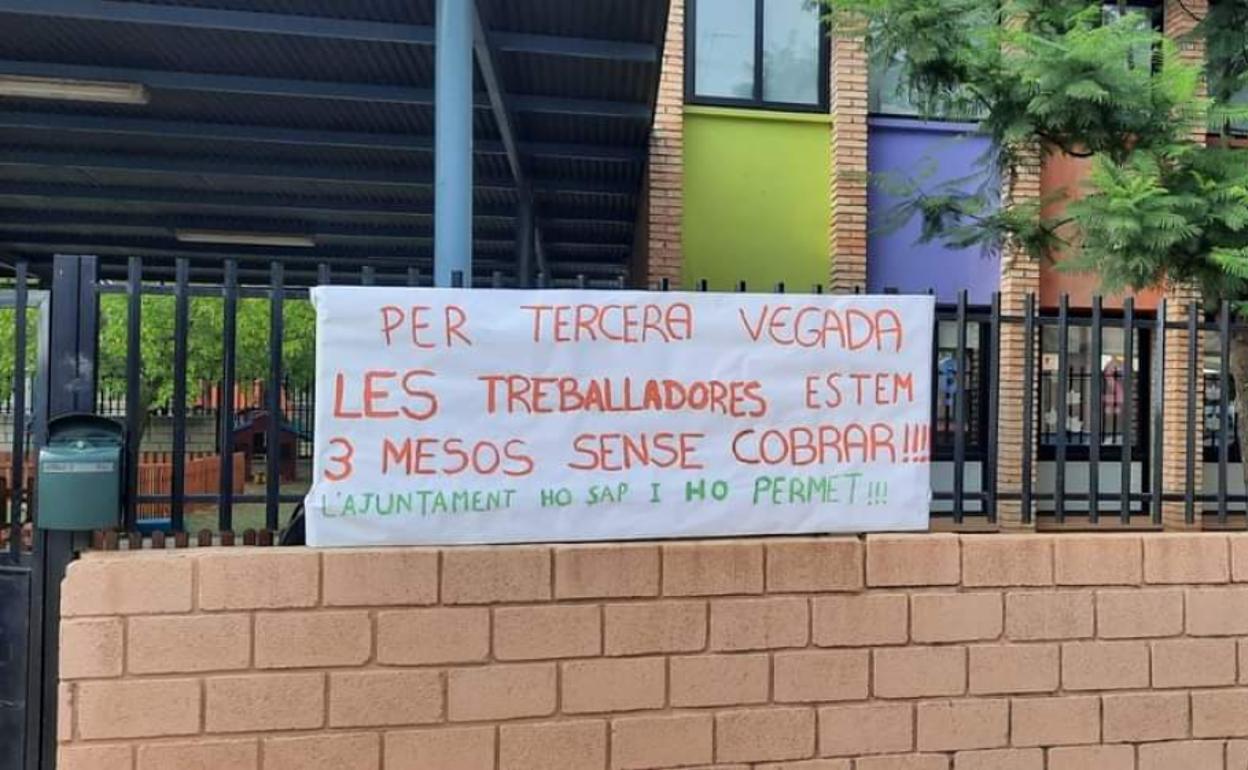 PER TERCERA VEGADA
LES TREBALLADORES ESTEM
3 MESOS SENSE COBRAR!!!!
L'AJUNTAMENT HO SAP I HO PERMET!!!